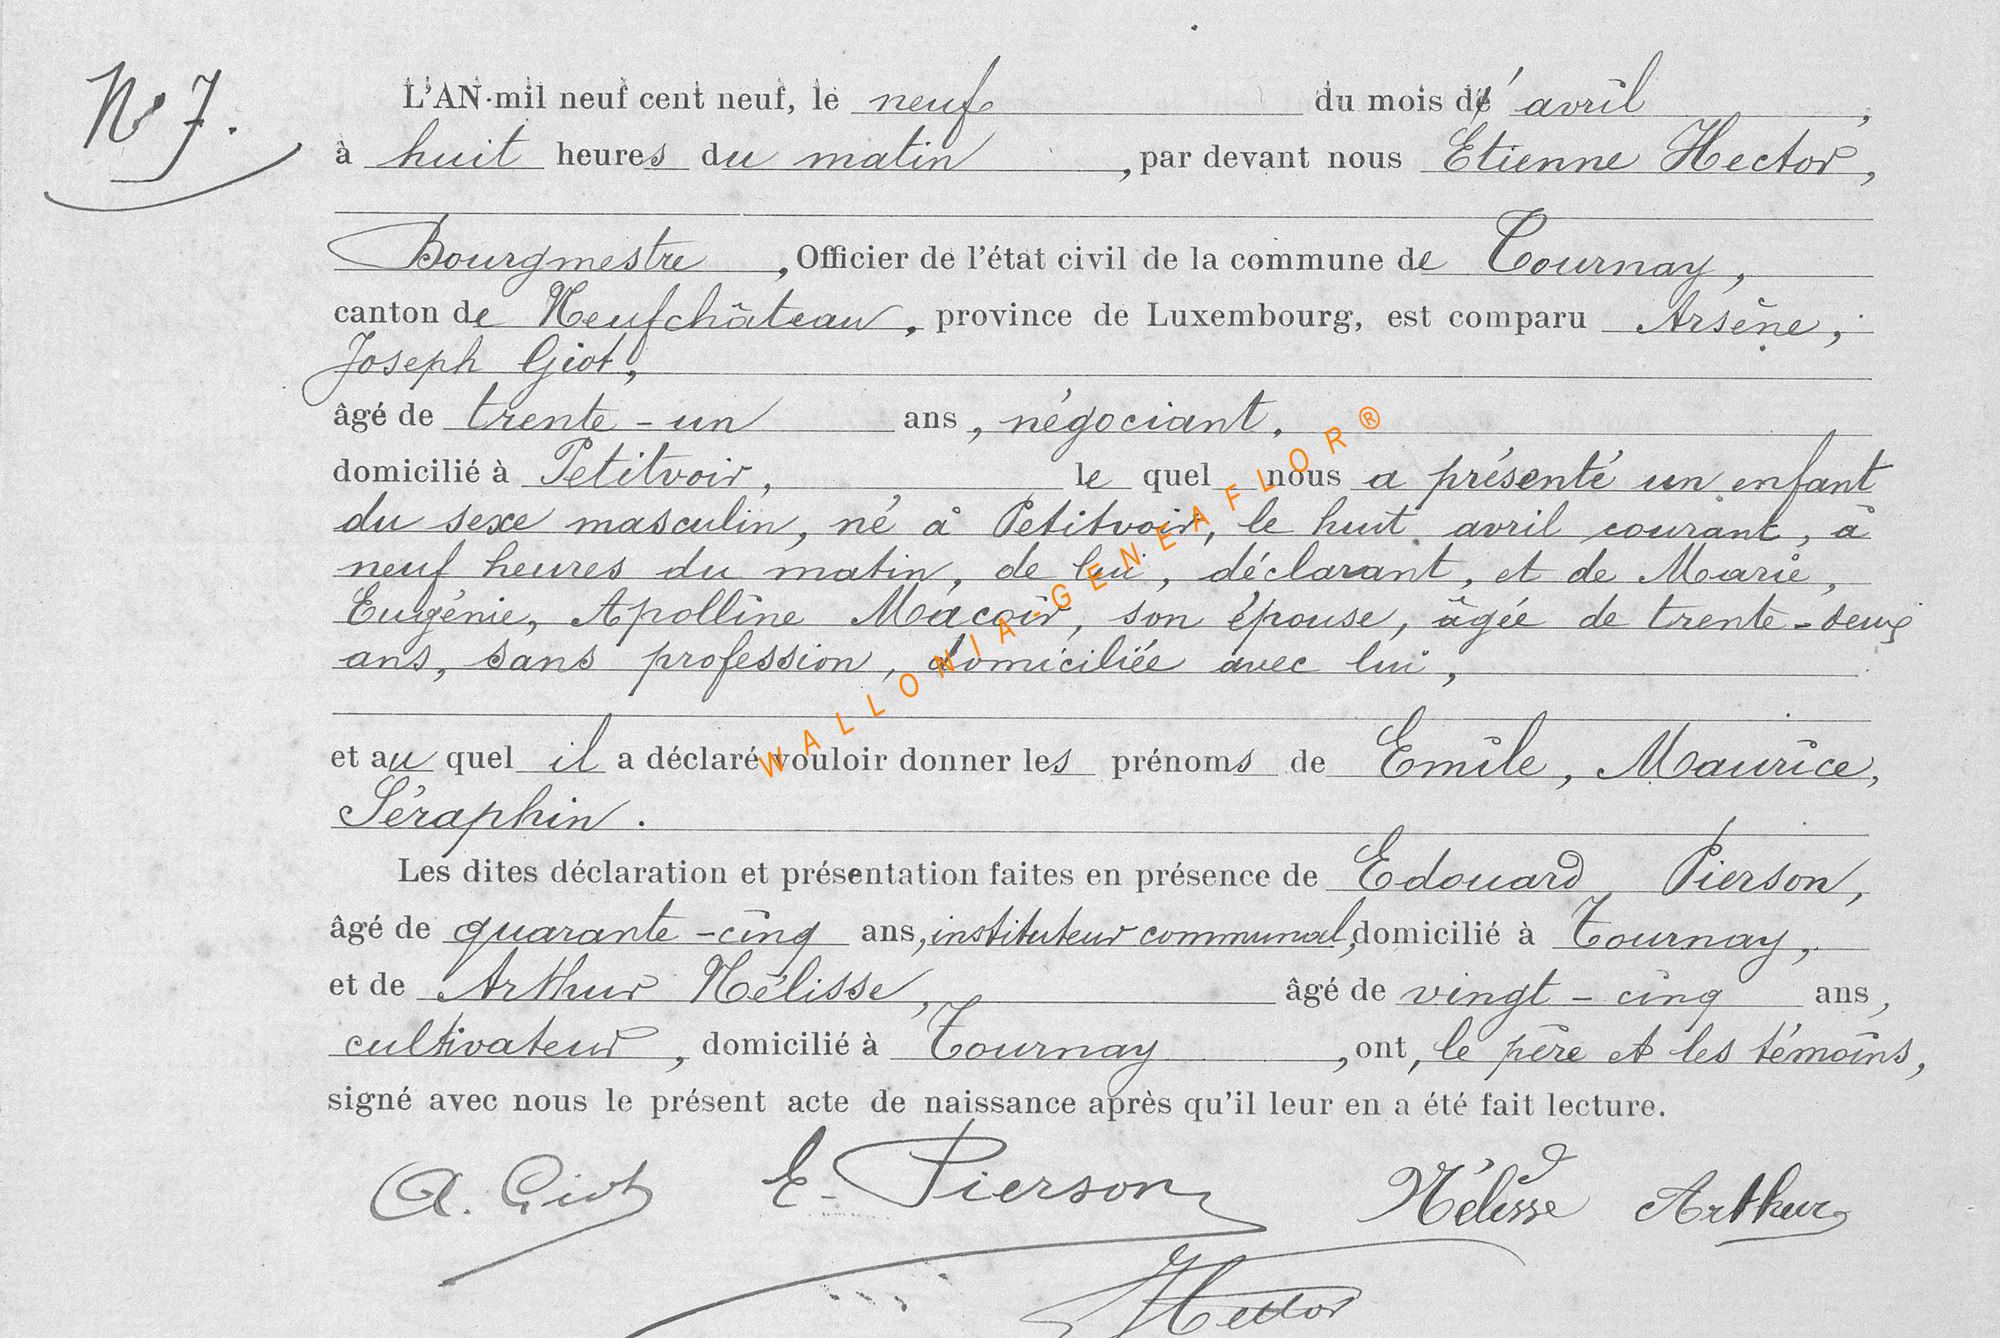 N° 7.
L'AN mil neuf cent neuf, le neuf du mois d' avril,
à huit heures du matin, par devant nous Etienne Hector,
Bourgmestre, Officier de l'état civil de la commune de Tournay,
canton de Neufchâteau, province de Luxembourg, est comparu Arsène,
Joseph Giot,
âgé de trente-un ans, négociant,
domicilié à Petitvoir, le quel nous a présenté un enfant
du sexe masculin, né à Petitvoir, le huit avril courant, à
neuf heures du matin, de lui, déclarant, et de Marie,
Eugénie, Apolline Macoir, son épouse, âgée de trente-deux
ans, sans profession, domiciliée avec lui,
et au quel il a déclaré vouloir donner les prénoms de Emile, Maurice,
Séraphin.
Les dites déclaration et présentation faites en présence de Edouard Pierson,
âgé de quarante-cinq ans, instituteur communal, domicilié à Tournay,
et de Arthur Nélisse, âgé de vingt-cinq ans,
cultivateur, domicilié à Tournay, ont, le père et les témoins,
signé avec nous le présent acte de naissance après qu'il leur en a été fait lecture.
A. Giot E. Pierson Nélisse Arthur
Hector
WALLONIA-GENEAFLOR®